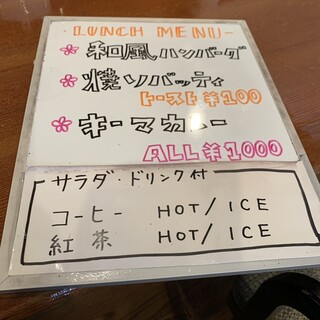 LUNCH MENU-
* 和風ハンバーグ
* 焼ソバッティ
トースト¥100
* キーマカレー
ALL ¥1000
サラダ・ドリンク付
コーヒー HOT/ICE
紅茶 HOT/ICE